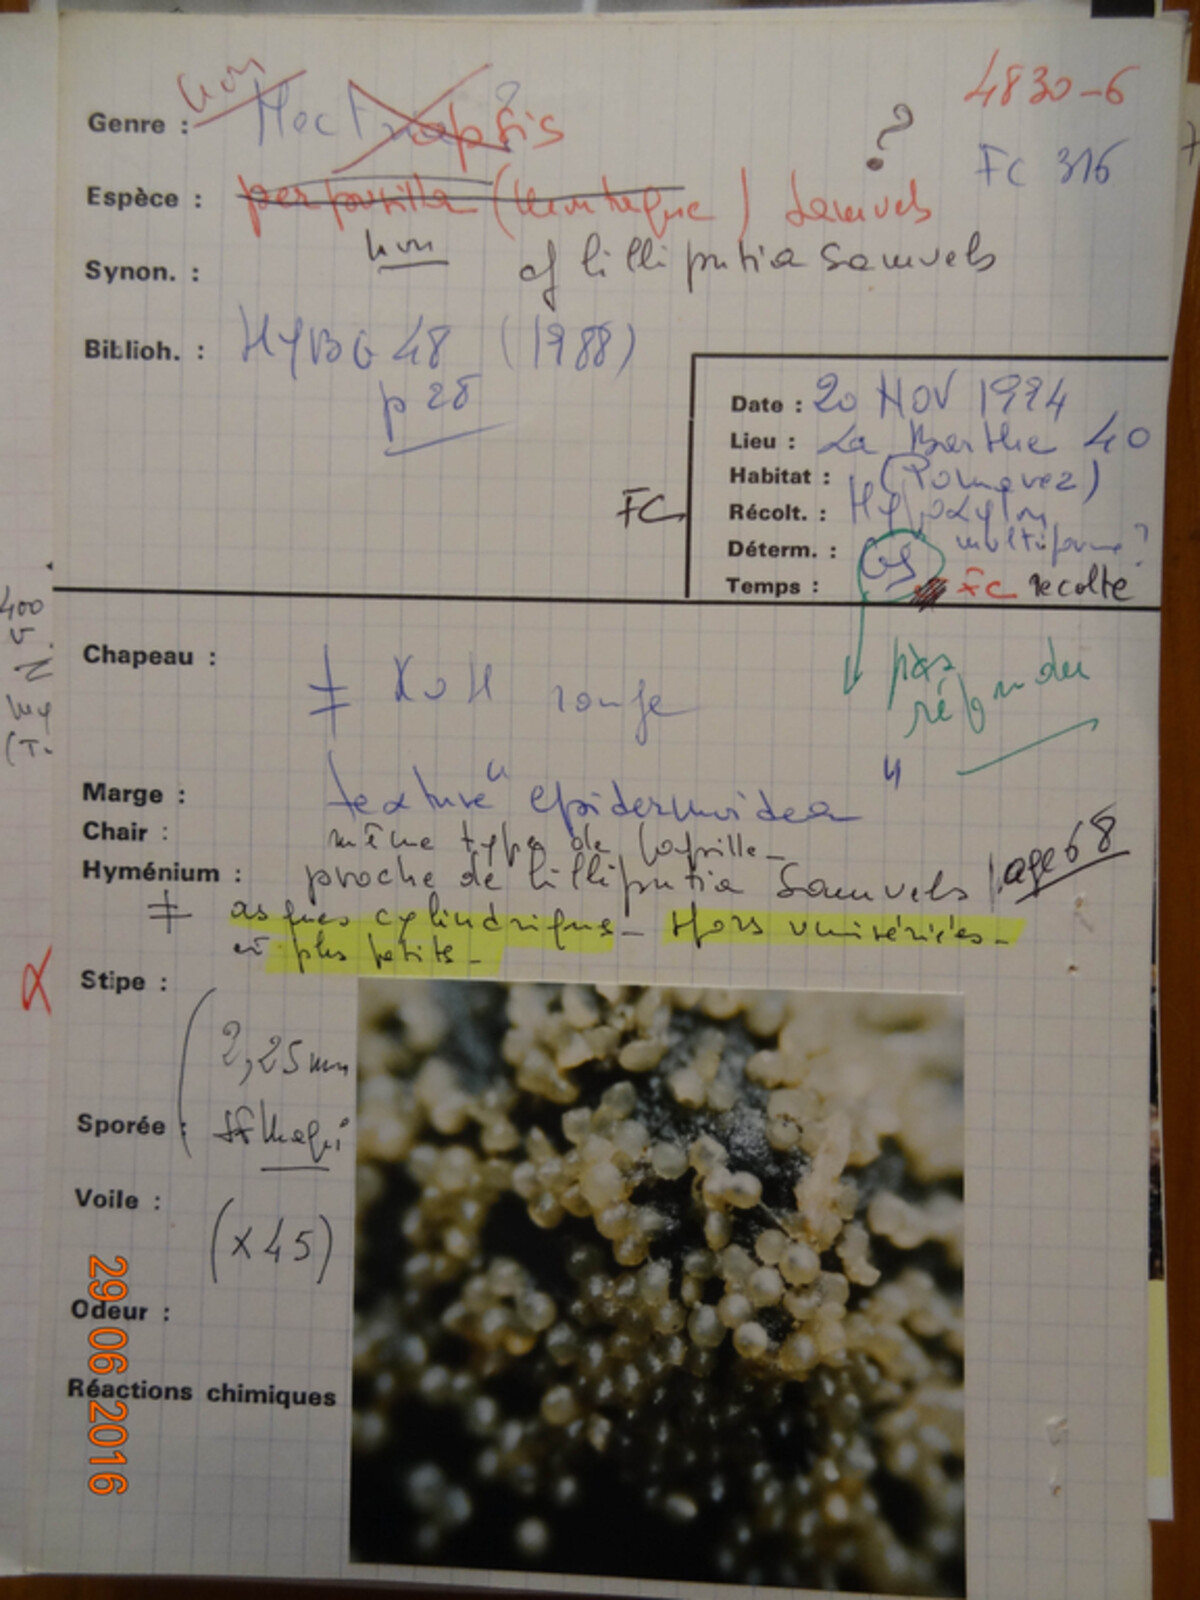 4830-6
Genre : non Nectriopsis ?
FC 316
Espèce : perpusilla (Montagne) Samuels ?
Synon. : non cf lilliputia Samuels
Biblioh. : NYBG 48 (1988)
p 28
Date : 20 NOV 1994
Lieu : La Barthe 40
Habitat : (Pomarez)
FC
Récolt. : Hypoxylon
multiforme ?
Déterm. :
Temps : FC recolte
Chapeau : ≠ KOH rouge
pas
répondu
Marge : texture "epidermoidea"
Chair : même type de
Hyménium : proche de lilliputia Samuels page 68
≠ asques cylindriques - spores unisériées -
et plus petits -
Stipe :
2,25 mm
Sporée :
Voile :
(x 45)
Odeur :
Réactions chimiques
29 06 2016
400